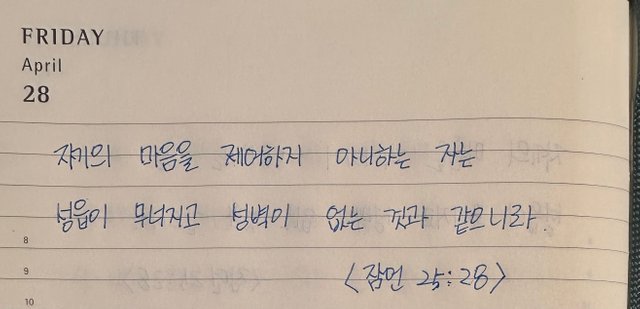 FRIDAY
April
28
자기의 마음을 제어하지 아니하는 자는
성읍이 무너지고 성벽이 없는 것과 같으니라.
8
<잠언 25:28>
9
10